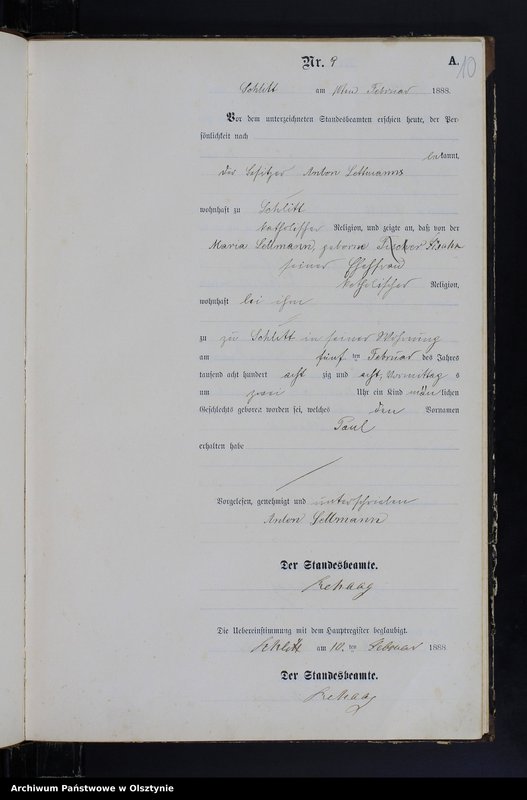 Nr. 9
A.
10
Schlitt am 10ten Februar 1888.
Vor dem unterzeichneten Standesbeamten erschien heute, der Per-
sönlichkeit nach
bekannt,
der Besitzer Anton Lettmann
wohnhaft zu Schlitt
katholischer Religion, und zeigte an, daß von der
Maria Lettmann, geborne
seiner Ehefrau
katholischer Religion,
wohnhaft bei ihm
zu zu Schlitt in seiner Wohnung
am fünf ten Februar des Jahres
tausend acht hundert acht zig und acht, Vormittag s
um zwei Uhr ein Kind män lichen
Geschlechts geboren worden sei, welches den Vornamen
Paul
erhalten habe
Vorgelesen, genehmigt und unterschrieben
Anton Lettmann
Der Standesbeamte.
Rehaag
Die Uebereinstimmung mit dem Hauptregister beglaubigt.
Schlitt am 10. ten Februar 1888
Der Standesbeamte.
Rehaag
Archiwum Państwowe w Olsztynie